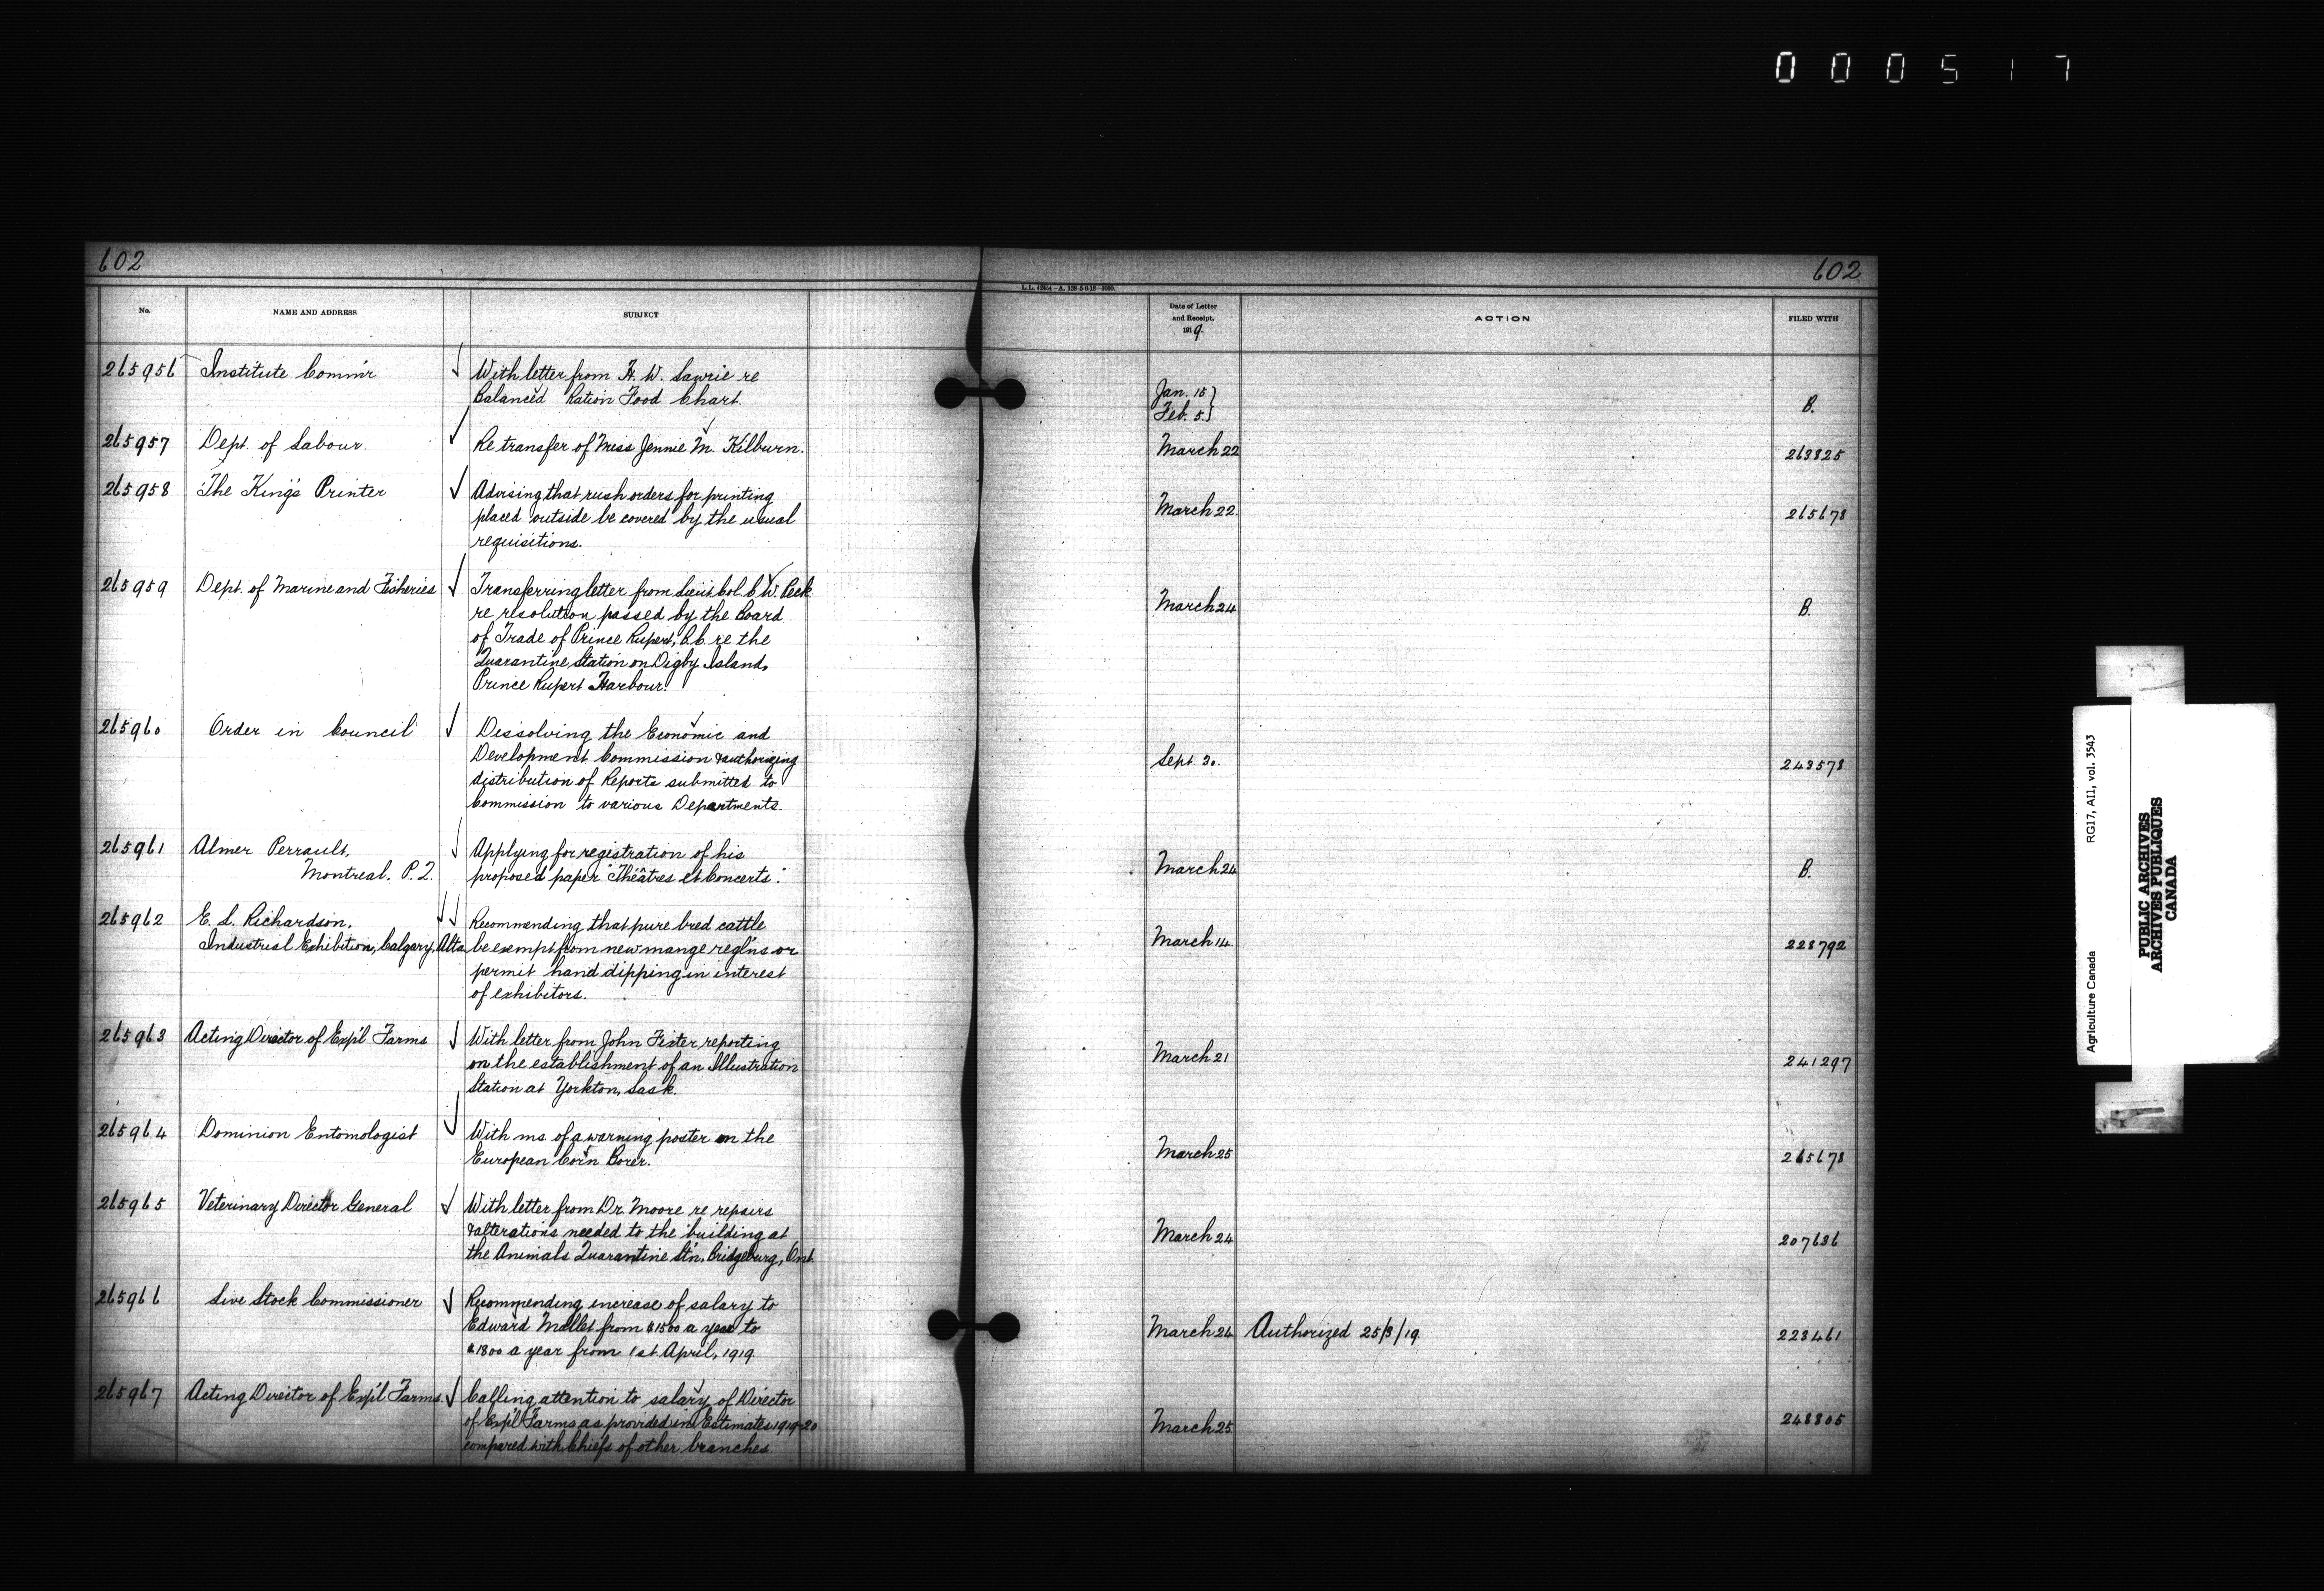 0 0 0 5 1 7
602
602
L.L. 61854—A. 138-5-6-18—1000.
No.
NAME AND ADDRESS
SUBJECT
Date of Letter
and Receipt,
1919.
ACTION
FILED WITH
265956 Institute Comm'r
With letter from H. W. Lawrie re
Balanced Ration Food Chart.
Jan. 15}
Feb. 5}
B.
265957 Dept. of Labour.
Re transfer of Miss Jennie M. Kilburn.
March 22
263825
265958 The King's Printer
Advising that rush orders for printing
placed outside be covered by the usual
requisitions.
March 22.
265678
265959 Dept. of Marine and Fisheries
Transferring letter from Lieut Col. C W. Peck
re resolution passed by the Board
of Trade of Prince Rupert, B.C. re the
Quarantine Station on Digby Island,
Prince Rupert Harbour.
March 24
B.
265960 Order in Council
Dissolving the Economic and
Development Commission & authorizing
distribution of Reports submitted to
Commission to various Departments.
Sept. 30.
243578
265961 Almer Perrault,
Montreal, P.Q.
Applying for registration of his
proposed paper "Théâtres et Concerts".
March 24
B.
265962 E. L. Richardson,
Industrial Exhibition, Calgary, Alta
Recommending that pure bred cattle
be exempt from new mange reg'l'ns or
permit hand dipping in interest
of exhibitors.
March 14.
228792
265963 Acting Director of Exp'l Farms
With letter from John Fixter reporting
on the establishment of an Illustration
Station at Yorkton, Sask.
March 21
241297
265964 Dominion Entomologist
With ms. of a warning poster on the
European Corn Borer.
March 25
265678
265965 Veterinary Director General
With letter from Dr. Moore re repairs
& alterations needed to the building at
the Animals Quarantine Stn, Bridgeburg, Ont.
March 24
207636
265966 Live Stock Commissioner
Recommending increase of salary to
Edward Mallet from $1500 a year to
$1800 a year from 1st April, 1919.
March 24
Authorized 25/3/19.
223461
265967 Acting Director of Exp'l Farms.
Calling attention to salary of Director
of Exp'l Farms as provided in Estimates 1919-20
compared with Chiefs of other branches.
March 25.
248805
Agriculture Canada RG17, AI1, vol. 3543
PUBLIC ARCHIVES
ARCHIVES PUBLIQUES
CANADA